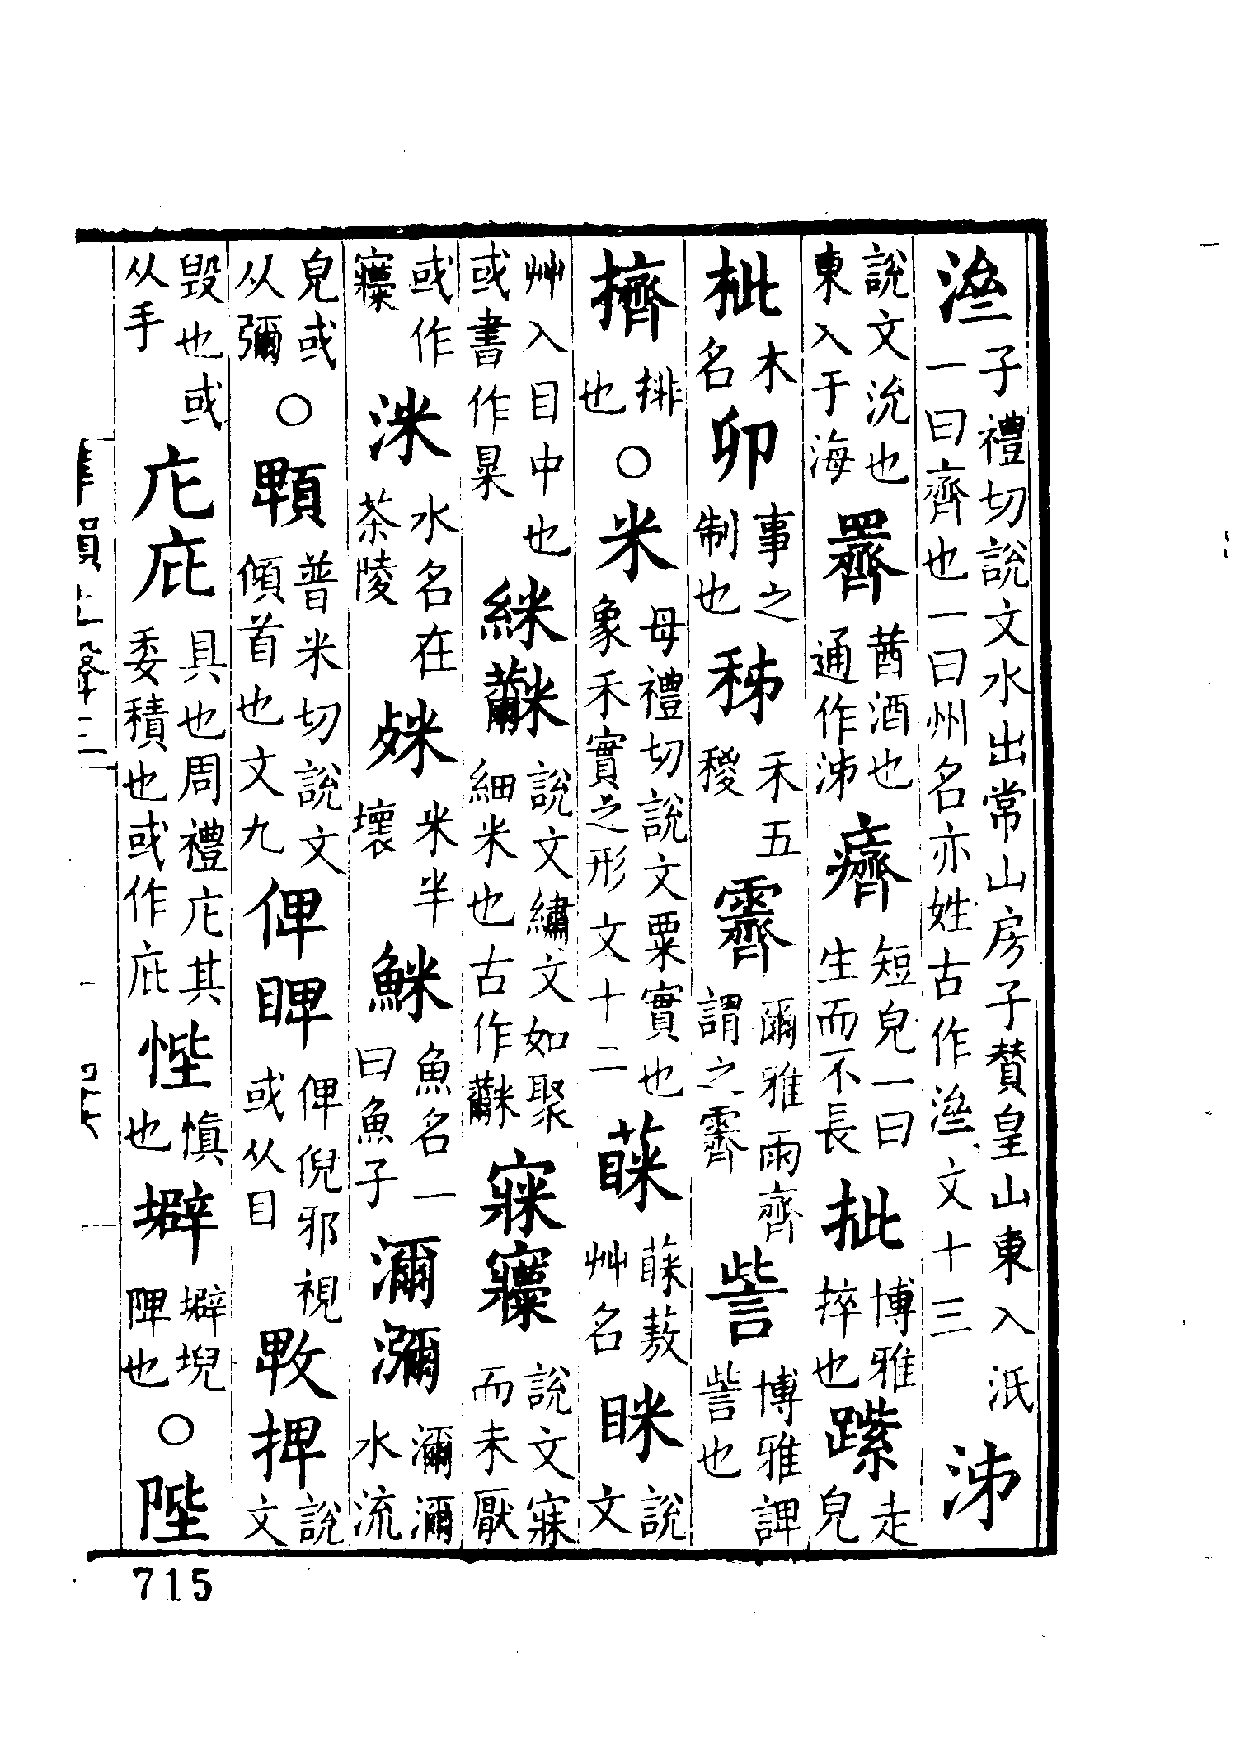 𣸣子禮切說文水出常山房子贊皇山東入泜一曰齊也一曰州名亦姓古作𣸣文十三泲
說文沇也東入于海𦋅酋酒也通作泲癠短皃一曰生而不長批博雅捽也躤走皃
枇木名卯事之制也秭禾五稷霽爾雅雨齊謂之霽訾博雅諀訾也
擠排也○米母禮切說文粟實也象禾實之形文十二蔝蔝蔜艸名眯說文
艸入目中也或書作𥇆絖𪓋說文繡文如聚細米也古作𪓋寐𥧲說文寐而未厭
或作𥧲洣水名在茶陵𣧲米半壞鮇魚名一曰魚子濔瀰濔濔水流
皃或从彌○顊普米切說文傾首也文九俾睥俾倪邪視或从目𢻹捭說文
毀也或从手庀庇具也周禮庀其委積也或作庇悂慎也壀壀堄陴也○陛
715